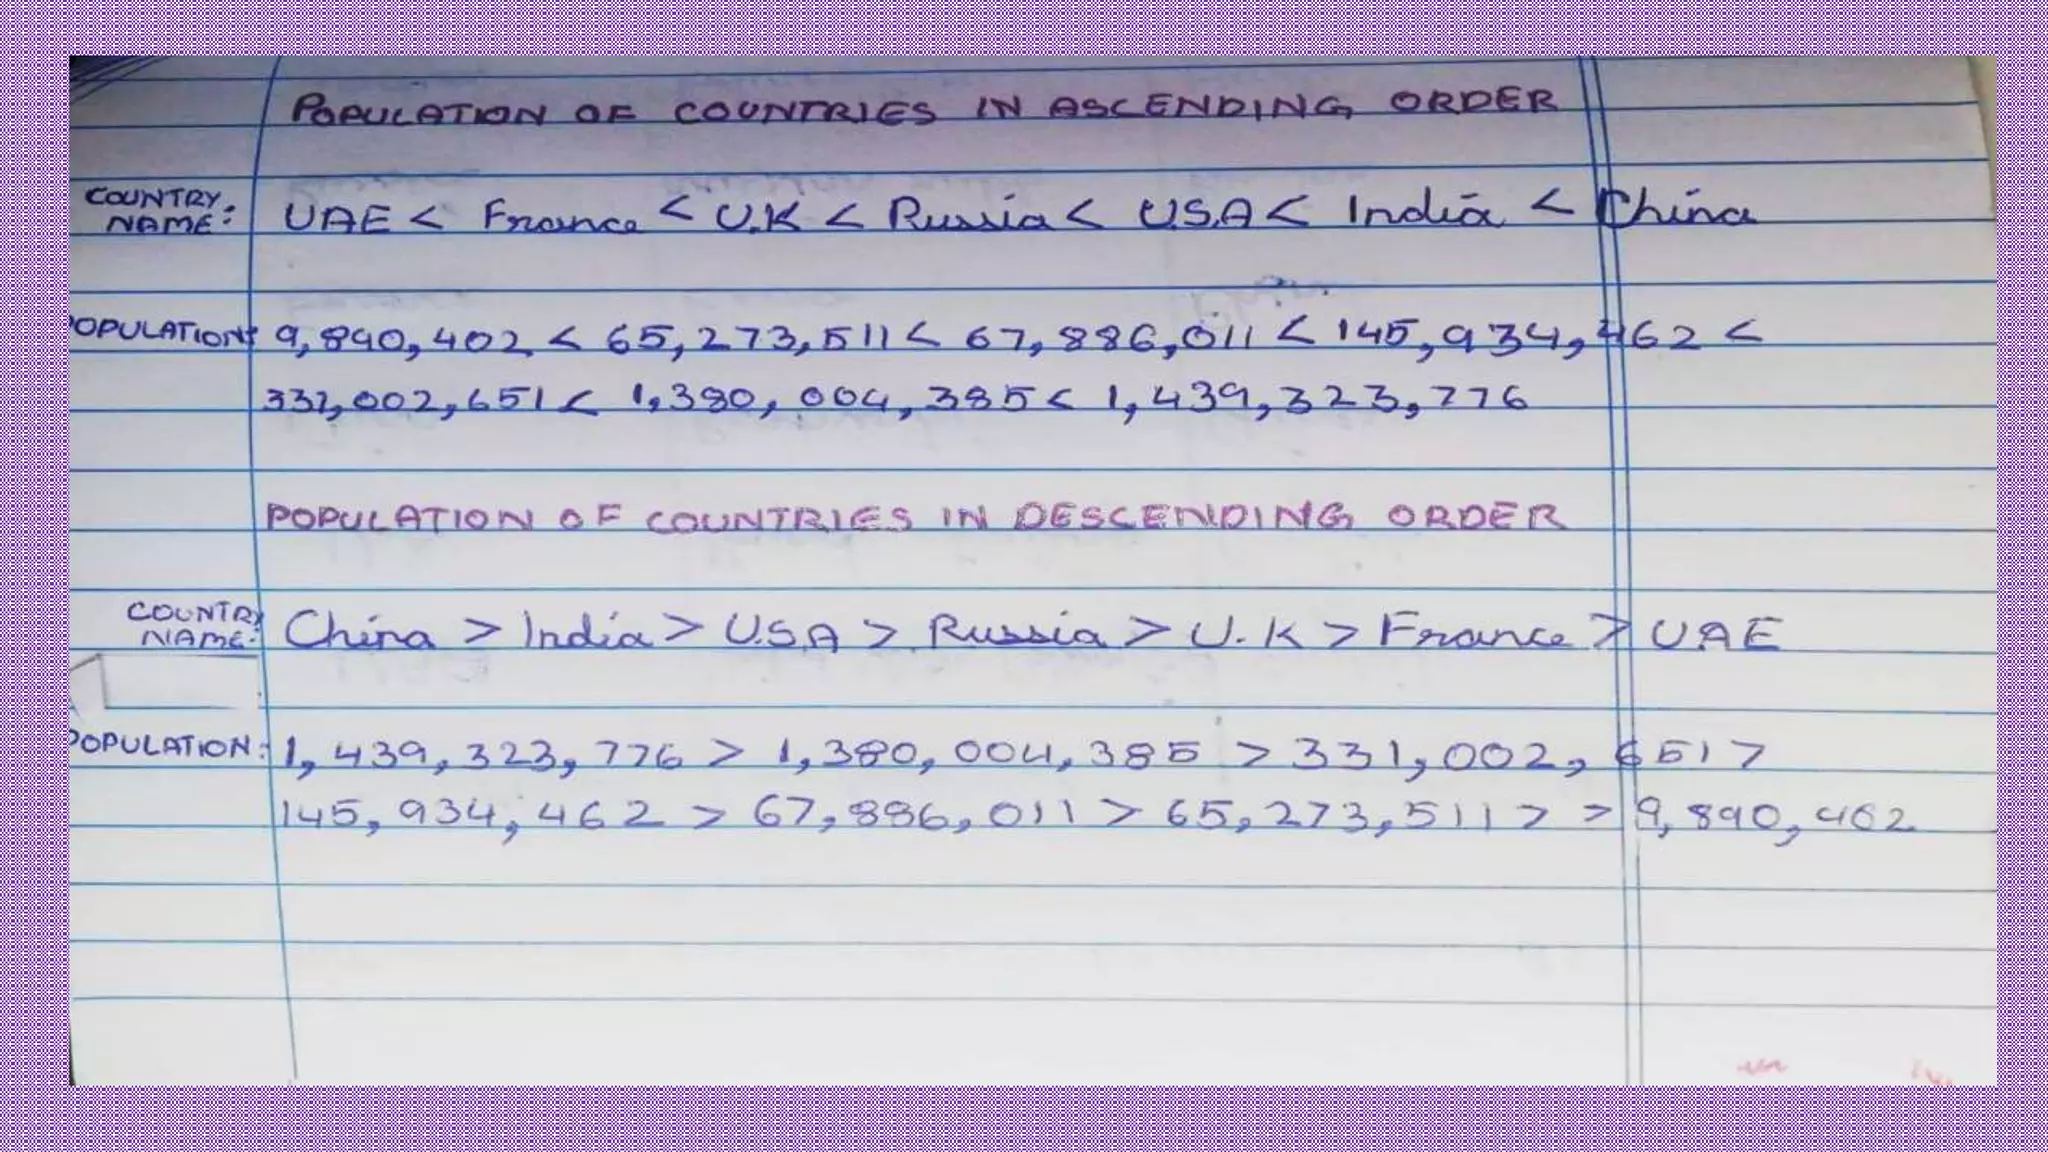 POPULATION OF COUNTRIES IN ASCENDING ORDER
COUNTRY NAME: UAE < France < U.K < Russia < U.S.A < India < China
POPULATION: 9,890,402 < 65,273,511 < 67,886,011 < 145,934,462 <
331,002,651 < 1,380,004,385 < 1,439,323,776
POPULATION OF COUNTRIES IN DESCENDING ORDER
COUNTRY NAME: China > India > U.S.A > Russia > U.K > France > UAE
POPULATION: 1,439,323,776 > 1,380,004,385 > 331,002,651 >
145,934,462 > 67,886,011 > 65,273,511 > > 9,890,402